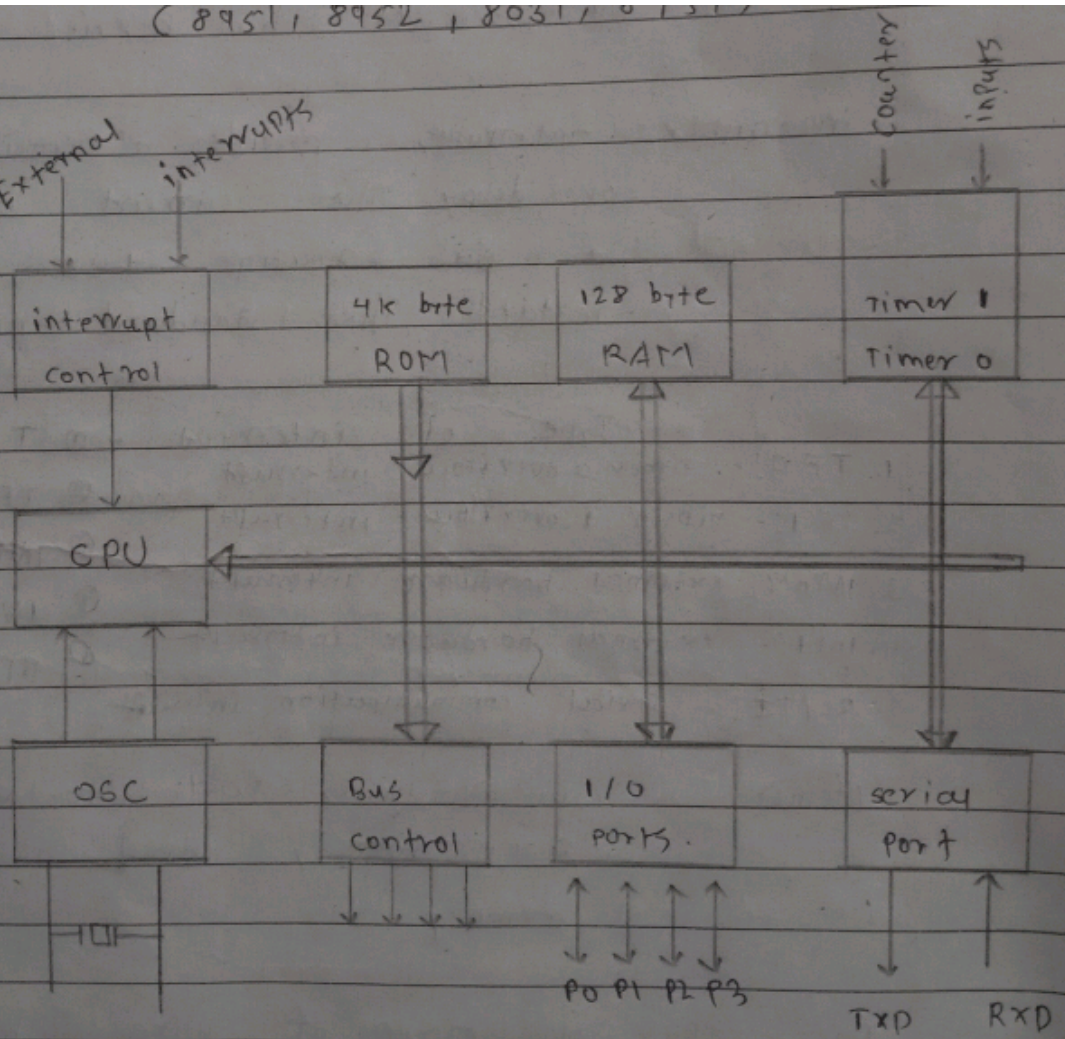 ( 8951, 8952, 8031,
Counter inputs
External interrupts
interrupt control
4K byte ROM
128 byte RAM
Timer 1
Timer 0
CPU
OSC
Bus control
I/O ports.
serial port
P0 P1 P2 P3
TXD RXD